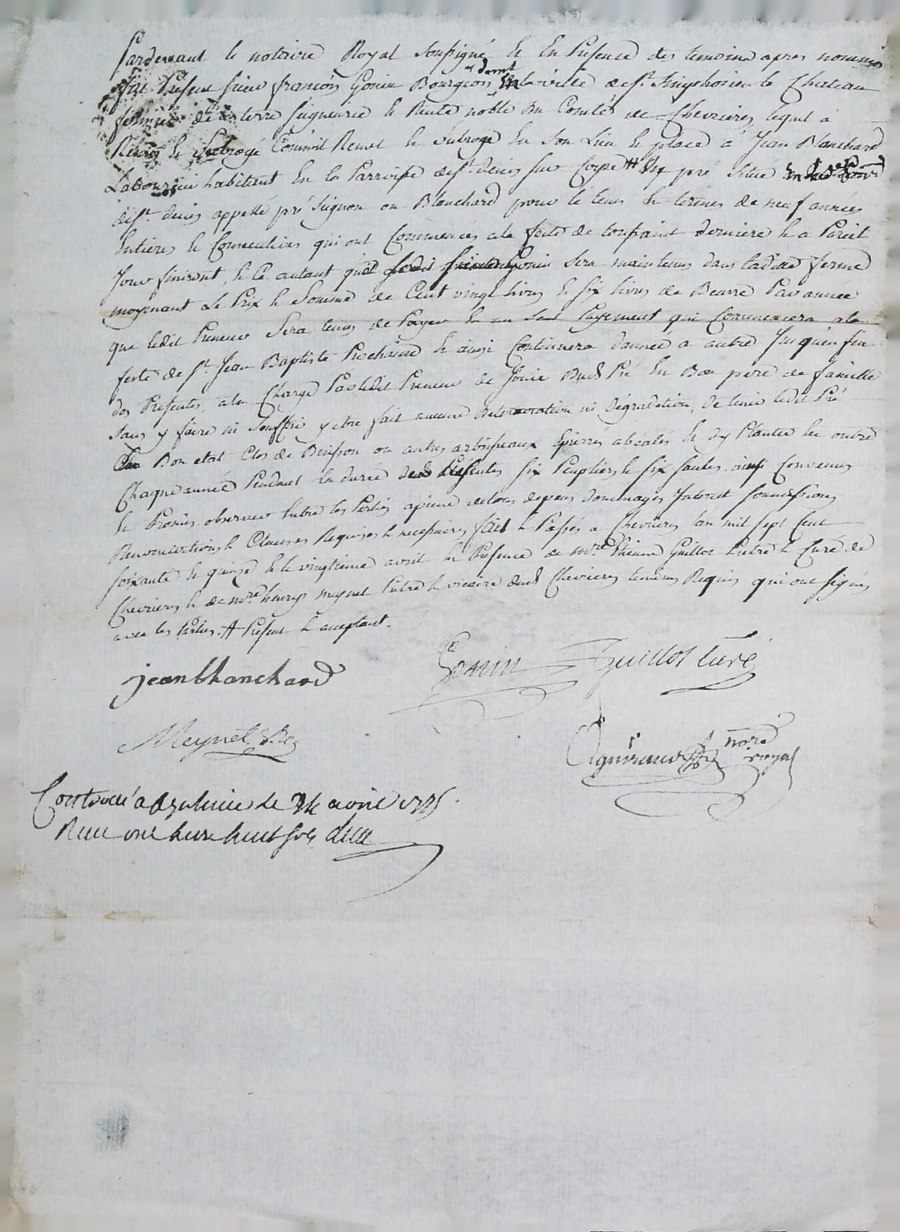 Pardevant le notaire Royal soussigné Et En Présence des temoins apres nommés
fut Présent sieur françois Gonin Bourgeois demt En la ville de St Simphorien le Chateau
fermier de la terre seigneurie et Rente noble du Comté de Chevrieres lequel a
Remis et Subrogé Comme il Remet et Subroge En son Lieu et place a Jean Blanchard
Laboureur habitant En la Parroisse de St denis sur Coise # Un pré Situé
de St denis appellé pré Blanchard pour le tems et termes de neuf années
Entieres et Consecutives qui ont Commencés a la fete de toussaint derniere et a Pareil
Jour finiront, et ce autant que ledit sieur Gonin sera maintenu dans lad. ferme
moyenant Le Prix et Somme de Cent vingt livres et six livres de Beurre Par année
que ledit Preneur Sera tenu de Payer En un seul Payement qui Commencera a la
fete de St Jean Baptiste Prochaine et ainsi Continuera d'année a autre Jusqu'en fin
des Presentes, a la Charge Par ledit Preneur de Jouir dud. Pré En Bon pere de famille
sans y faire ni souffrir y etre fait aucune deterioration ni degradation, de tenir ledit Pré
En Bon etat Clos de Buisson ou autres arbrisseaux et d'y Planter En outre
Chaque année Pendant la durée des Presentes six Peupliers et six saules, ainsi Convenus
Et Promis observer Entre les Parties a peine de tous depens dommages Interet soumissions
Renonciations et Clauses Requises et necessaires fait et Passés a Chevrieres l'an mil sept Cent
soixante et quinze et le vingtieme avril En Présence de Mre Etienne Guillot Pretre et Curé de
Chevrieres et de Mre Meynet Pretre et vicaire dud. Chevrieres temoins Requis qui ont signés
avec les Parties. # Présent et acceptant.
jean blanchard
Gonin
Guillot Curé
Meynet vre
nore royal
Controllé a le 24 avril 1775.
Reçu une livre huit sols